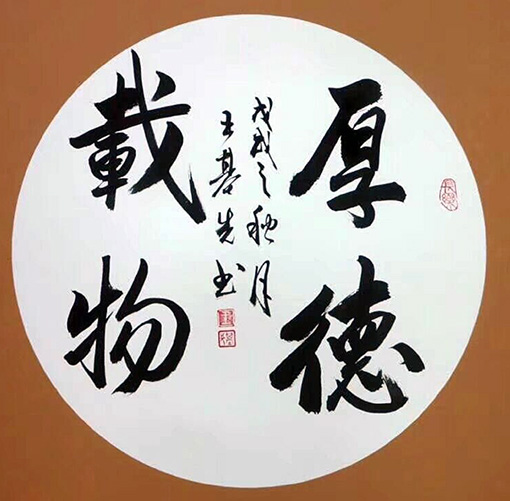 厚德
載物
戊戌之秋月
王基先书